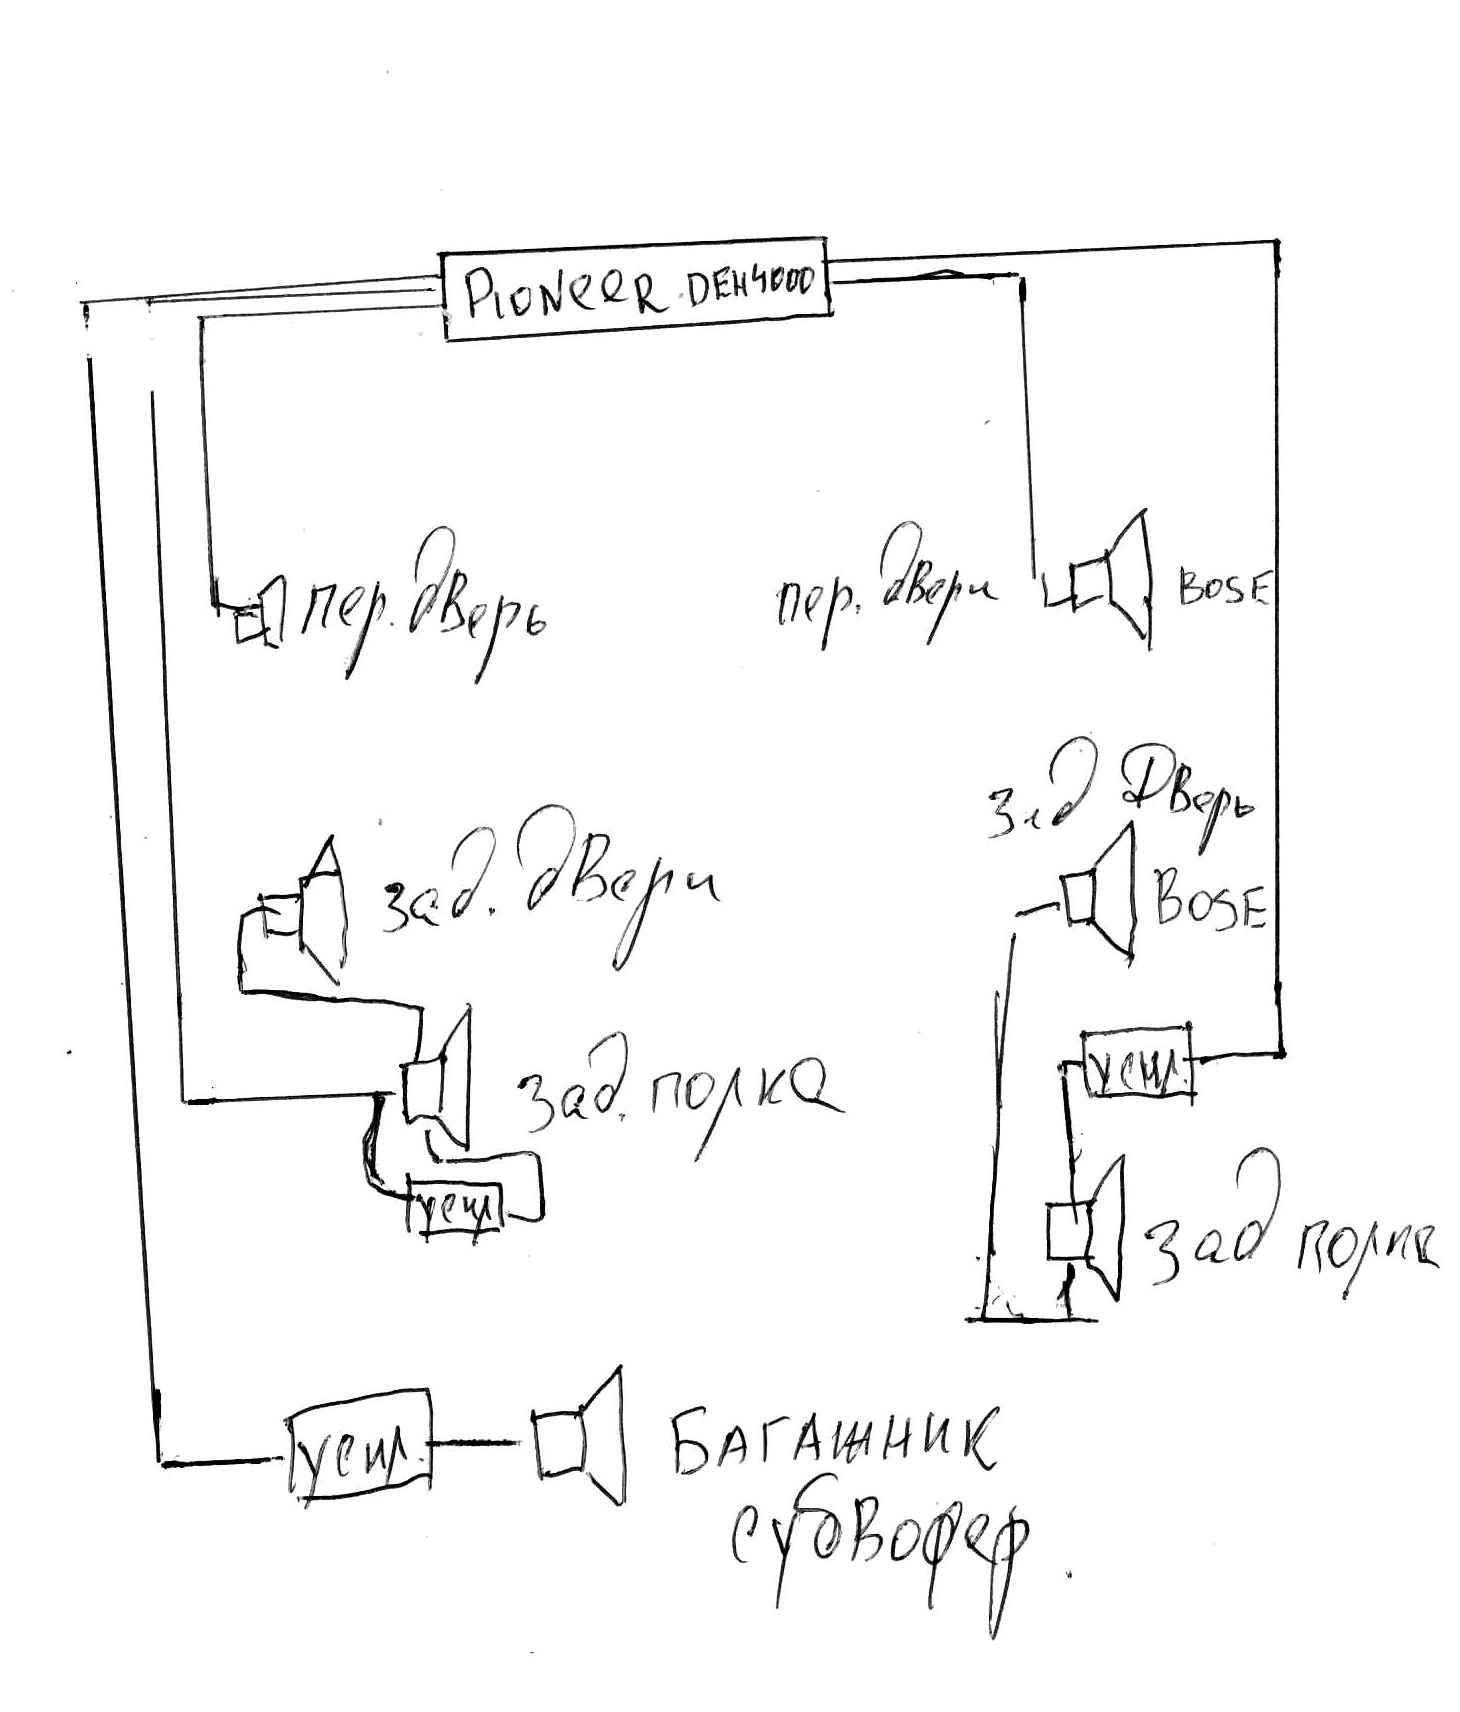 PIONEER DEH4000
пер. дверь
пер. двери
BOSE
зад дверь
BOSE
зад. двери
усил.
зад. полка
усил
зад полка
усил.
БАГАЖНИК
субвофер